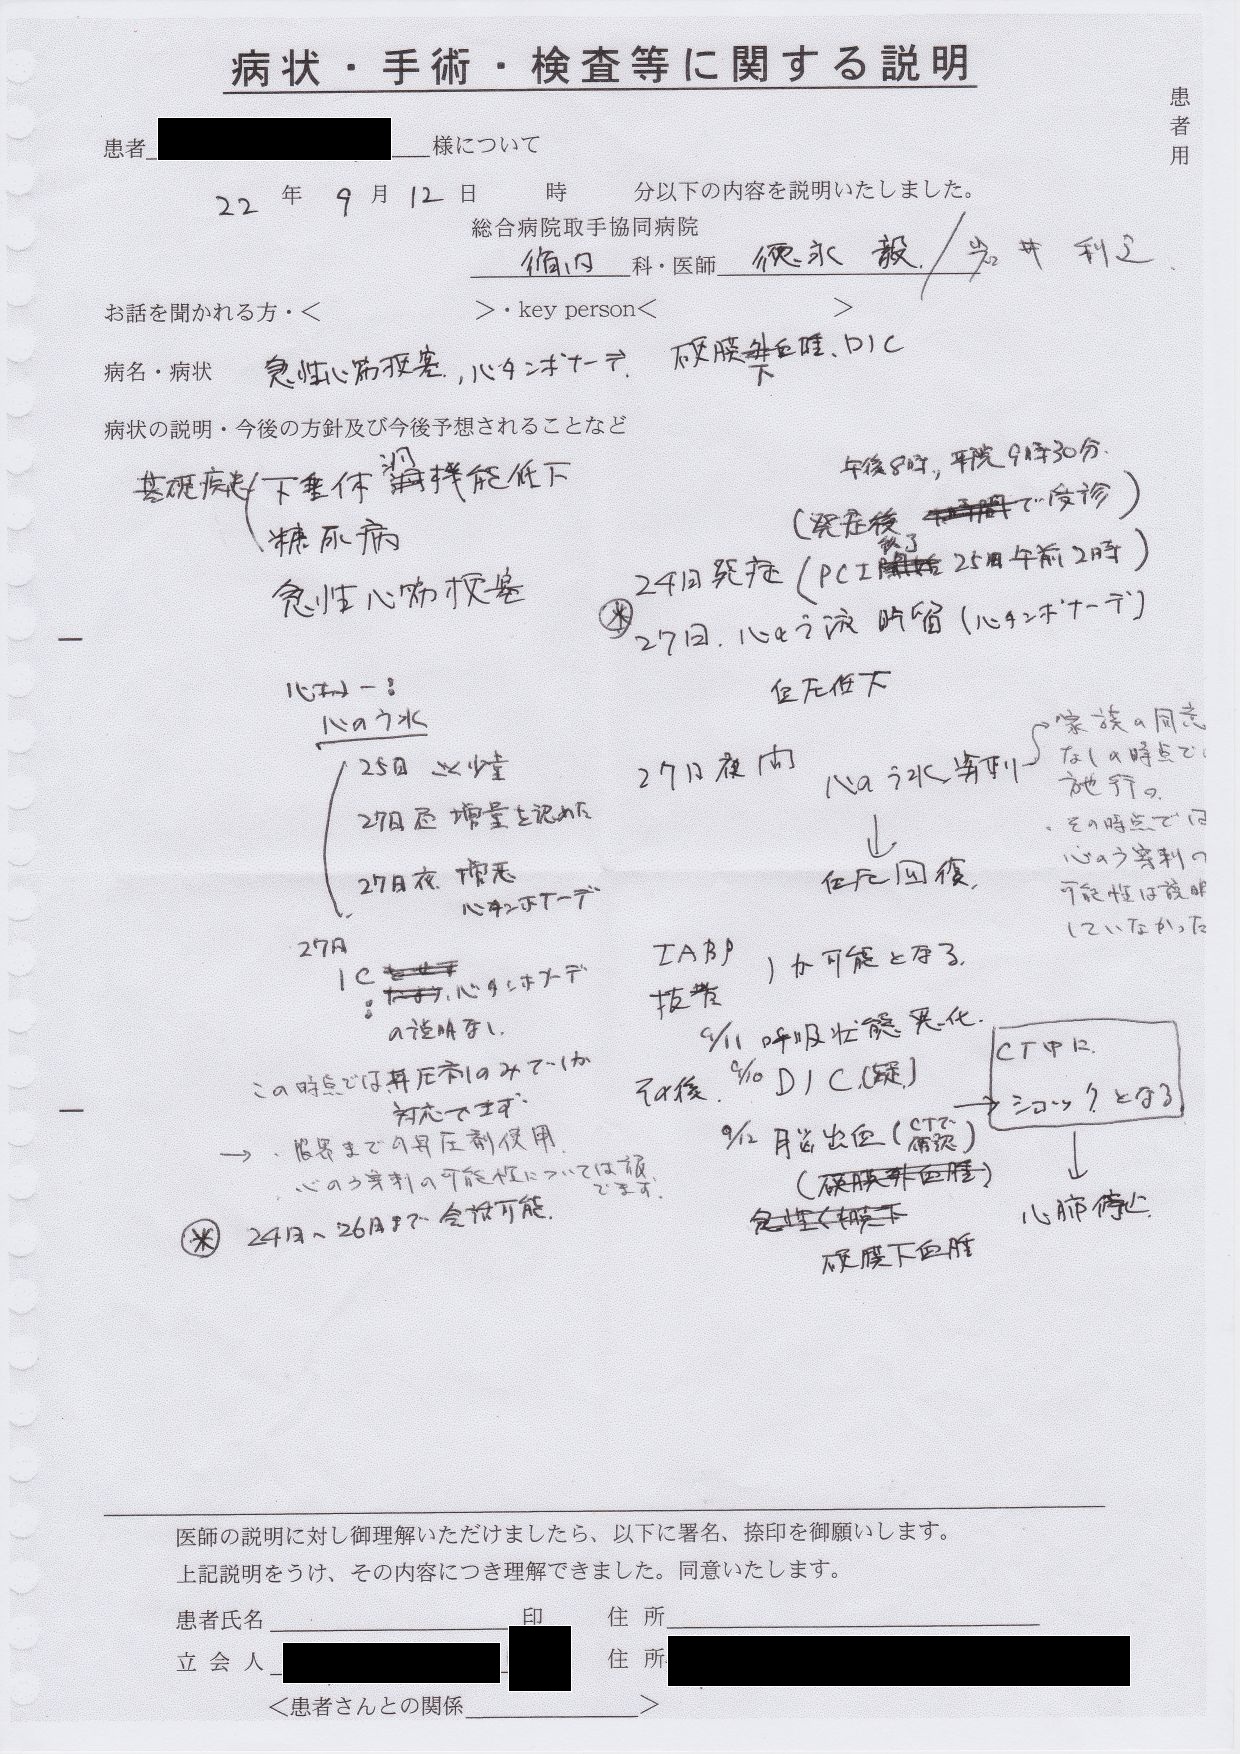 病状・手術・検査等に関する説明
患者用
患者 様について
22 年 9 月 12 日 時 分以下の内容を説明いたしました。
総合病院取手協同病院
循内 科・医師 徳永 毅 /
お話を聞かれる方・＜ ＞・key person＜ ＞
病名・病状 急性心筋梗塞、心タンポナーデ、硬膜外血腫、DIC
下
病状の説明・今後の方針及び今後予想されることなど
基礎疾患 下垂体 機能低下
糖尿病
急性心筋梗塞
午後8時, 来院9時30分.
(発症後 時間で受診)
24日発症 (PCI 開始 25日午前2時)
終了
※ 27日. 心のう液貯留 (心タンポナーデ)
血圧低下
心エコー:
心のう水
25日 ごく少量
27日昼 増量を認めた
27日夜. 増悪
心タンポナーデ
27日夜間 心のう水穿刺
家族の同意
なしの時点で
施行の.
・その時点では
心のう穿刺の
可能性は説明
していなかった
↓
血圧回復.
27日
IC
心タンポナーデ
の説明なし.
この時点では昇圧剤のみでしか
対応できず.
→ ・限界までの昇圧剤使用.
・心のう穿刺の可能性については話.
できます.
※ 24日~26日まで会話可能.
IABP
抜去 が可能となる.
9/11 呼吸状態悪化.
その後. 9/10 DIC.(疑)
9/12 脳出血 (CTで確認)
(硬膜外血腫)
硬膜下血腫
→ CT中に.
ショックとなる
↓
心肺停止.
医師の説明に対し御理解いただけましたら、以下に署名、捺印を御願いします。
上記説明をうけ、その内容につき理解できました。同意いたします。
患者氏名 印 住 所
立 会 人 住 所
＜患者さんとの関係 ＞